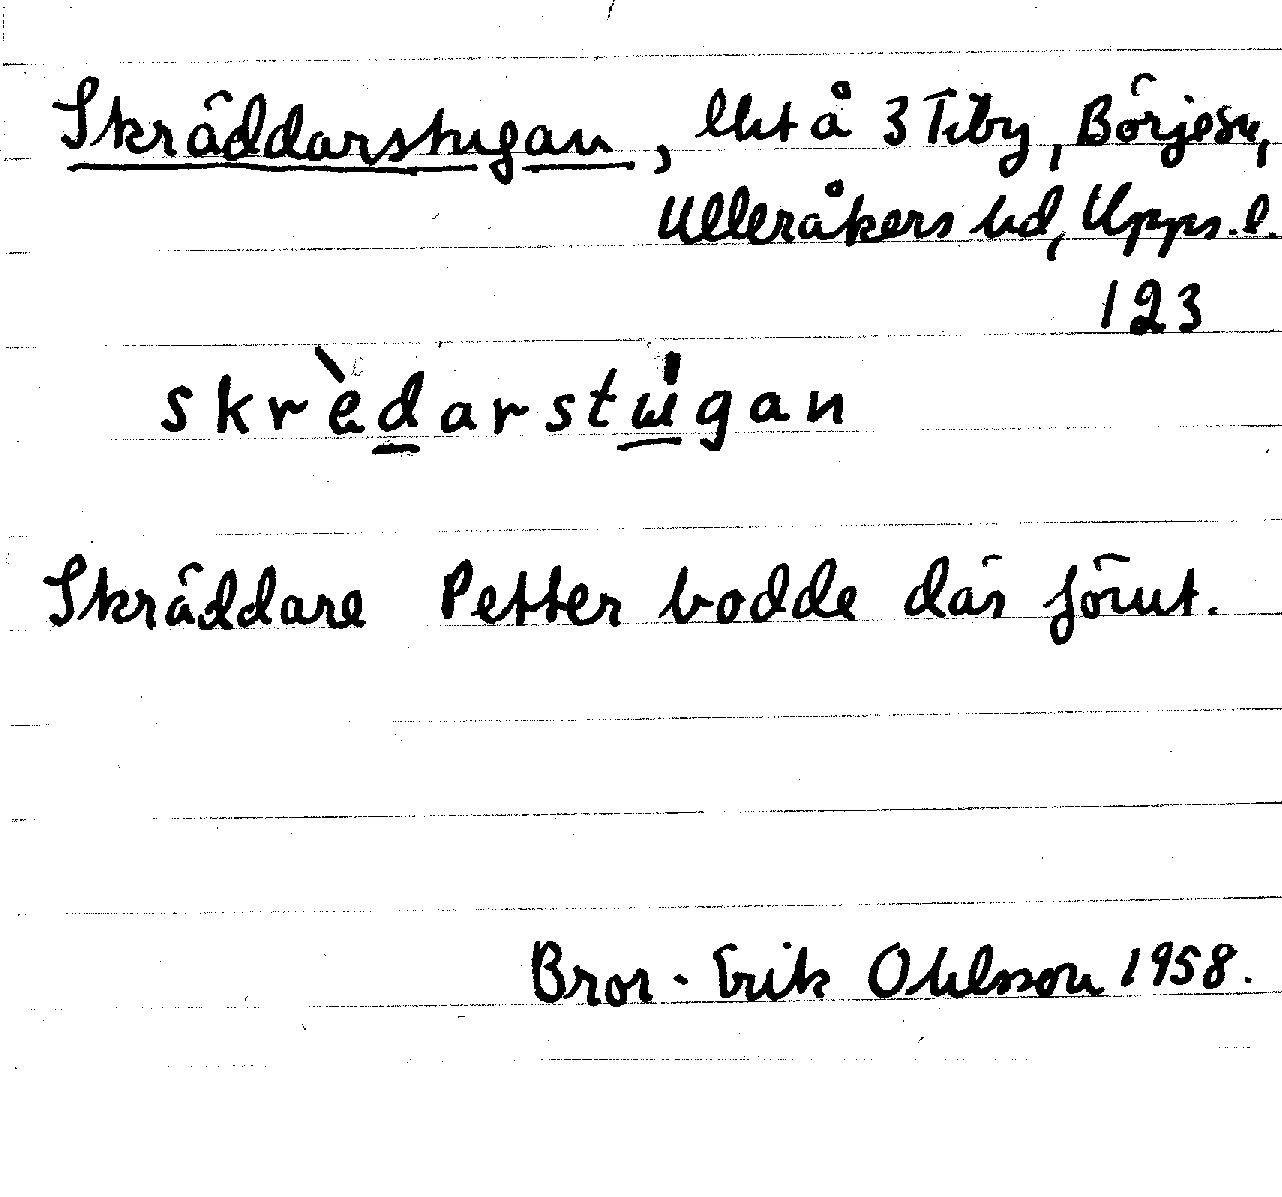 Skräddarstugan, lht å 3 Tiby, Börje sn,
Ulleråkers hd, Upps. l.
123
skrèdarstɯ́gan
Skräddare Petter bodde där förut.
Bror-Erik Ohlsson 1958.